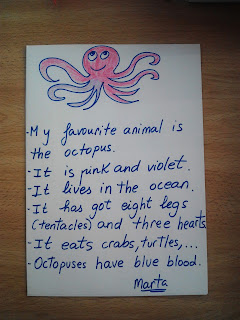 - My favourite animal is
the octopus.
- It is pink and violet.
- It lives in the ocean.
- It has got eight legs
(tentacles) and three hearts.
- It eats crabs, turtles,...
- Octopuses have blue blood.
Marta